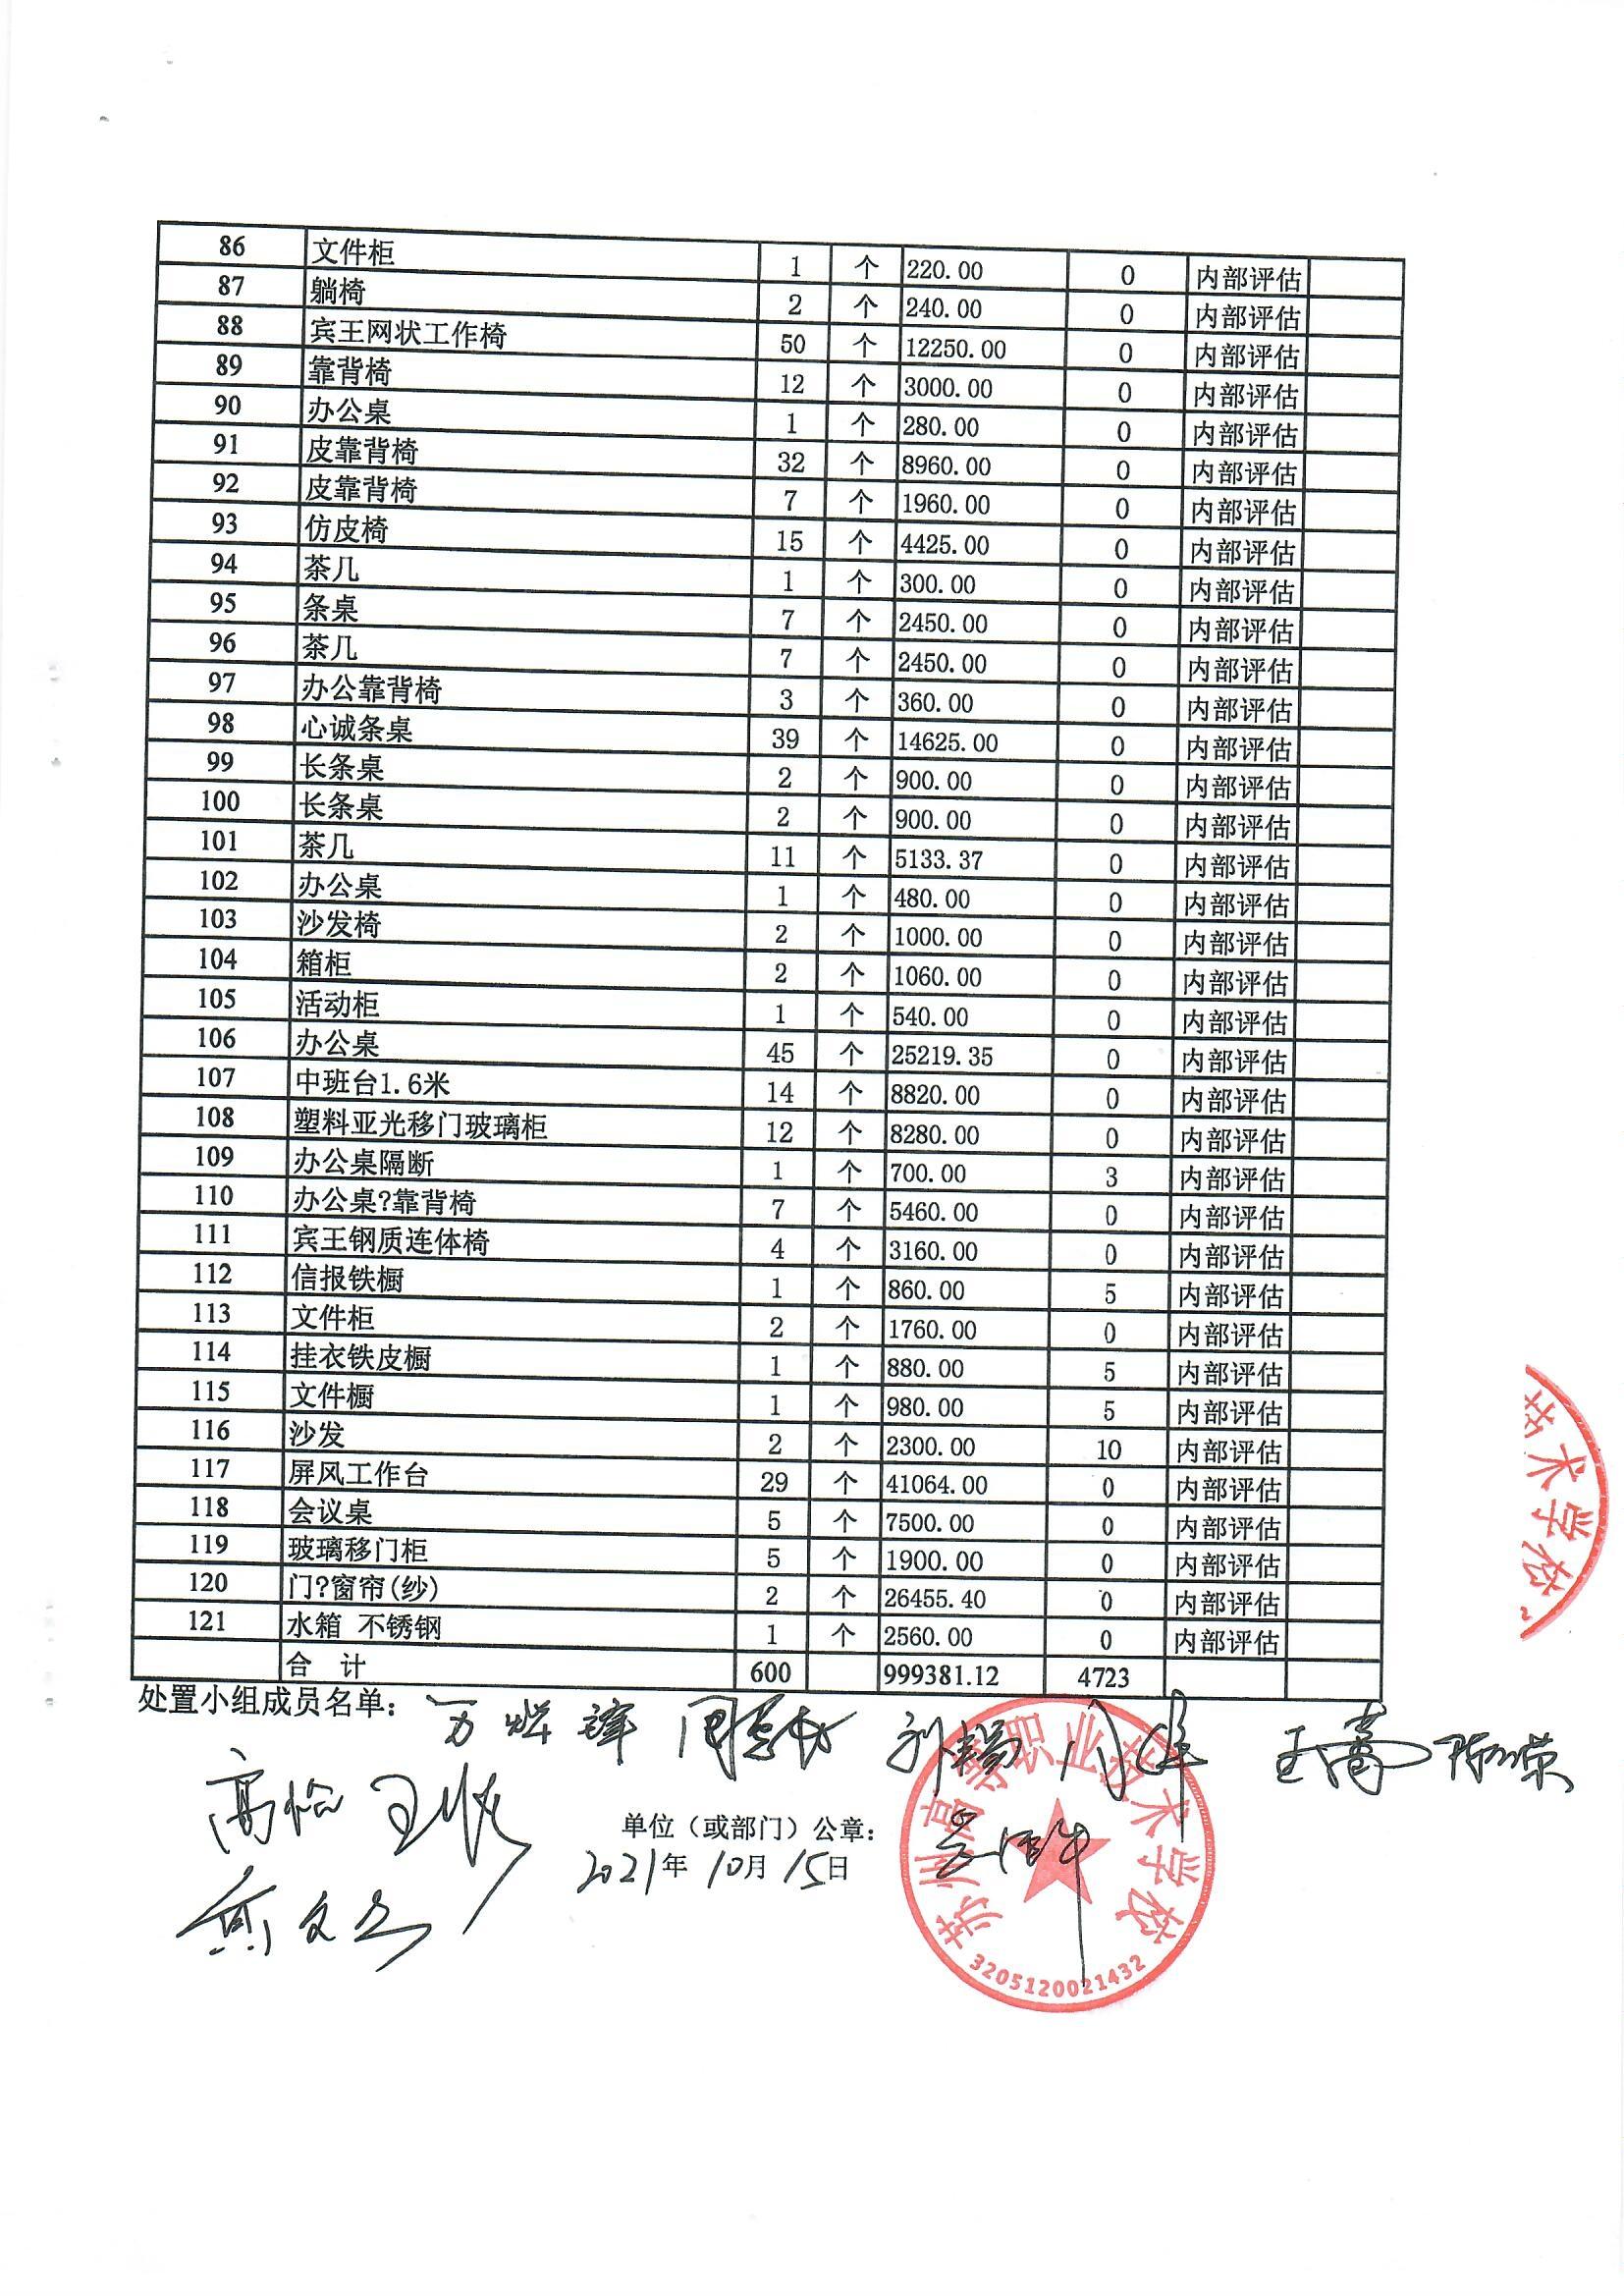 86 文件柜 1 个 220.00 0 内部评估
87 躺椅 2 个 240.00 0 内部评估
88 宾王网状工作椅 50 个 12250.00 0 内部评估
89 靠背椅 12 个 3000.00 0 内部评估
90 办公桌 1 个 280.00 0 内部评估
91 皮靠背椅 32 个 8960.00 0 内部评估
92 皮靠背椅 7 个 1960.00 0 内部评估
93 仿皮椅 15 个 4425.00 0 内部评估
94 茶几 1 个 300.00 0 内部评估
95 条桌 7 个 2450.00 0 内部评估
96 茶几 7 个 2450.00 0 内部评估
97 办公靠背椅 3 个 360.00 0 内部评估
98 心诚条桌 39 个 14625.00 0 内部评估
99 长条桌 2 个 900.00 0 内部评估
100 长条桌 2 个 900.00 0 内部评估
101 茶几 11 个 5133.37 0 内部评估
102 办公桌 1 个 480.00 0 内部评估
103 沙发椅 2 个 1000.00 0 内部评估
104 箱柜 2 个 1060.00 0 内部评估
105 活动柜 1 个 540.00 0 内部评估
106 办公桌 45 个 25219.35 0 内部评估
107 中班台1.6米 14 个 8820.00 0 内部评估
108 塑料亚光移门玻璃柜 12 个 8280.00 0 内部评估
109 办公桌隔断 1 个 700.00 3 内部评估
110 办公桌?靠背椅 7 个 5460.00 0 内部评估
111 宾王钢质连体椅 4 个 3160.00 0 内部评估
112 信报铁橱 1 个 860.00 5 内部评估
113 文件柜 2 个 1760.00 0 内部评估
114 挂衣铁皮橱 1 个 880.00 5 内部评估
115 文件橱 1 个 980.00 5 内部评估
116 沙发 2 个 2300.00 10 内部评估
117 屏风工作台 29 个 41064.00 0 内部评估
118 会议桌 5 个 7500.00 0 内部评估
119 玻璃移门柜 5 个 1900.00 0 内部评估
120 门?窗帘(纱) 2 个 26455.40 0 内部评估
121 水箱 不锈钢 1 个 2560.00 0 内部评估
合 计 600 999381.12 4723
处置小组成员名单：
高怡
单位（或部门）公章：
2021年10月15日
苏州高等职业技术学校
3205120021432
技术学校
2